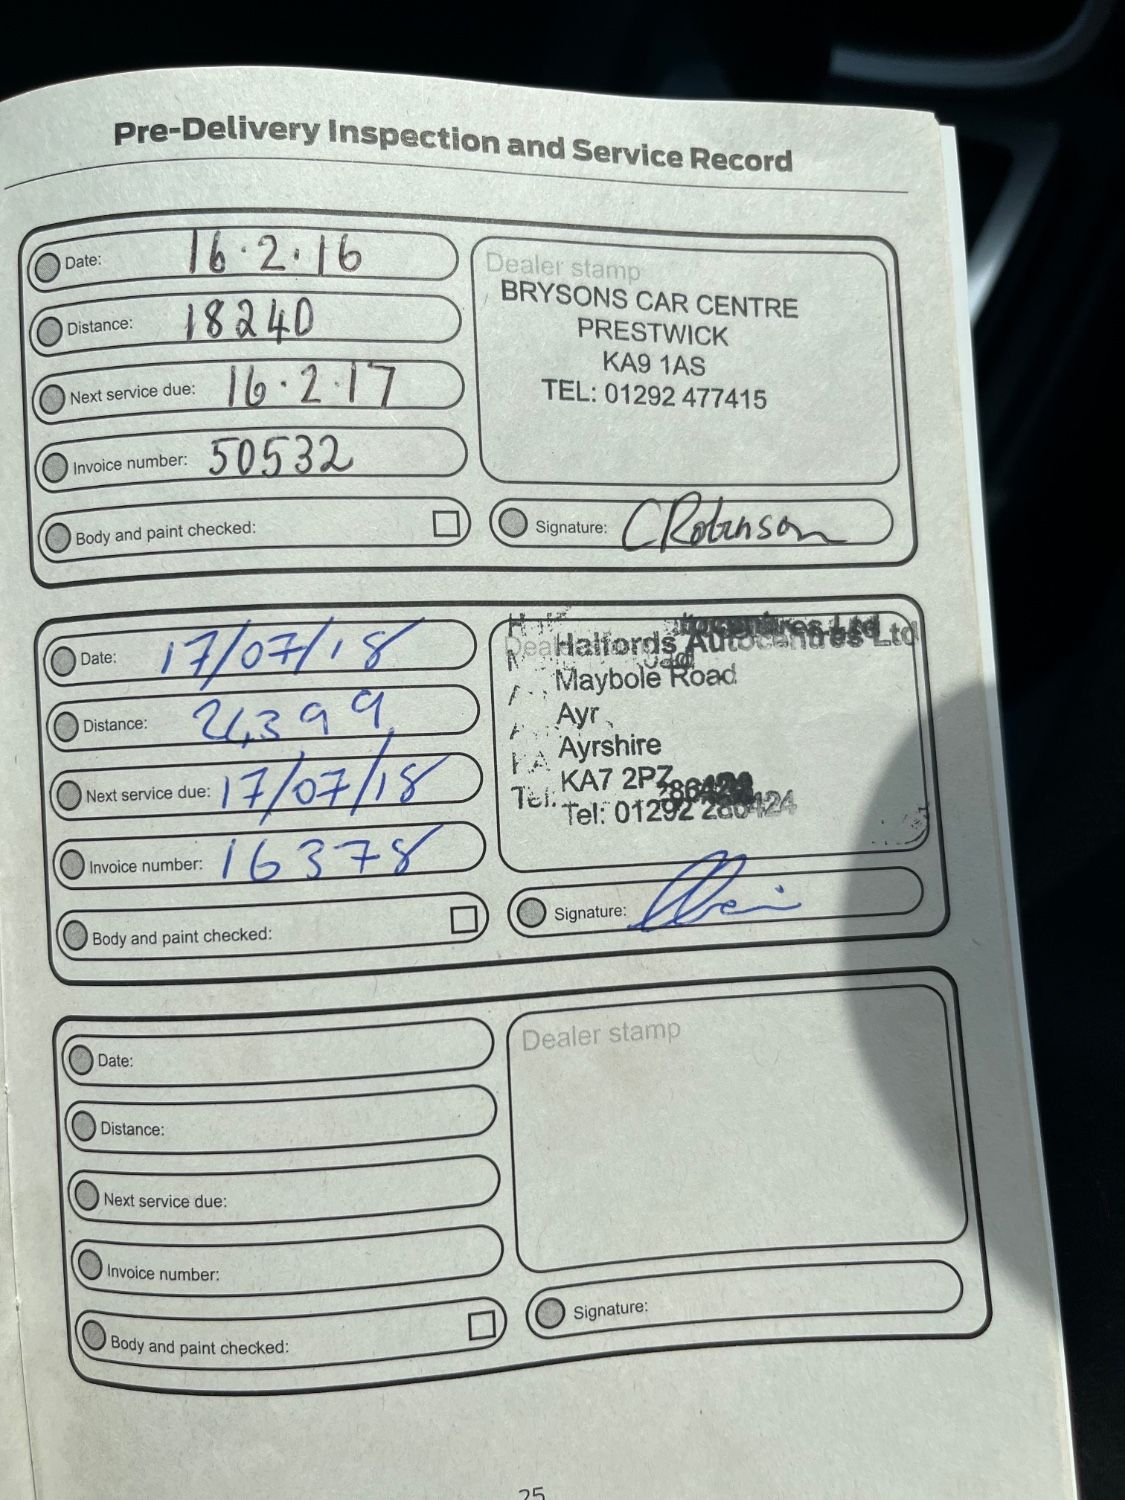 Pre-Delivery Inspection and Service Record
Date: 16.2.16
Distance: 18240
Next service due: 16.2.17
Invoice number: 50532
Body and paint checked:
Dealer stamp
BRYSONS CAR CENTRE
PRESTWICK
KA9 1AS
TEL: 01292 477415
Signature: C Robinson
Date: 17/07/18
Distance: 24399
Next service due: 17/07/18
Invoice number: 16378
Body and paint checked:
Halfords Autocentres Ltd
Maybole Road
Ayr
Ayrshire
KA7 2PZ
Tel: 01292 286424
Signature:
Date:
Distance:
Next service due:
Invoice number:
Body and paint checked:
Dealer stamp
Signature:
25